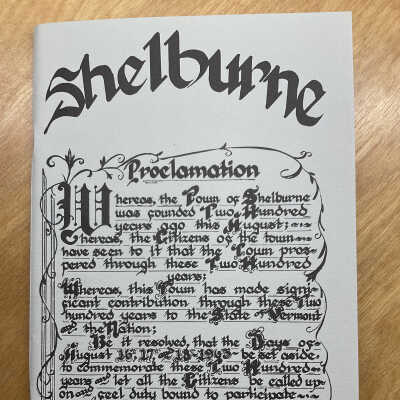 Shelburne
Proclamation
Whereas, the Town of Shelburne
was founded Two Hundred
years ago this August;
Whereas, the Citizens of the town
have seen to it that the Town pros-
pered through these Two Hundred
years;
Whereas, this Town has made signi-
ficant contribution through these Two
hundred years to the State of Vermont
and the Nation;
Be it resolved, that the Days of
August 16, 17 and 18-1963 be set aside
to commemorate these Two Hundred
years and let all the Citizens be called up-
on and feel duty bound to participate